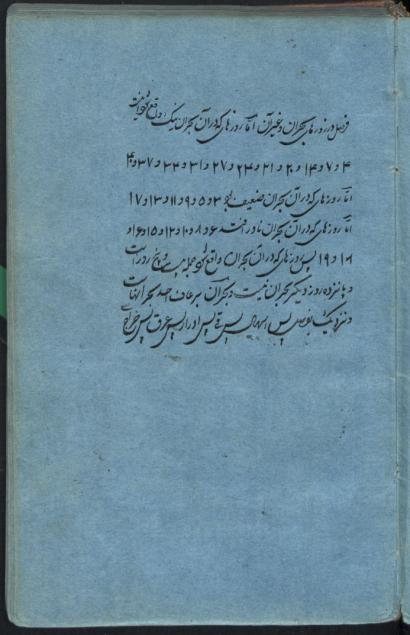 در روزهای بحران و غیر آن اما روزهای که در آن بحران نیک واقع شود اینست
۴ و ۷ و ۱۴ و ۲۰ و ۲۱ و ۲۴ و ۲۷ و ۳۱ و ۳۴ و ۳۷ و ۴۰
اما روزهای که در آن بحران ضعیف بود ۳ و ۵ و ۹ و ۱۱ و ۱۳ و ۱۷
اما روزهای که در آن بحران نادر افتد ۶ و ۸ و ۱۰ و ۱۲ و ۱۵ و ۱۶ و
۱۸ و ۱۹ پس روزهای که در آن بحران واقع شود جمله بیست و پنج روز است
و پانزده روز دیگر بحران نیست و بحران رعاف بحرانهاست
و نزدیک پس اسهال پس قی پس ادرار پس عرق پس